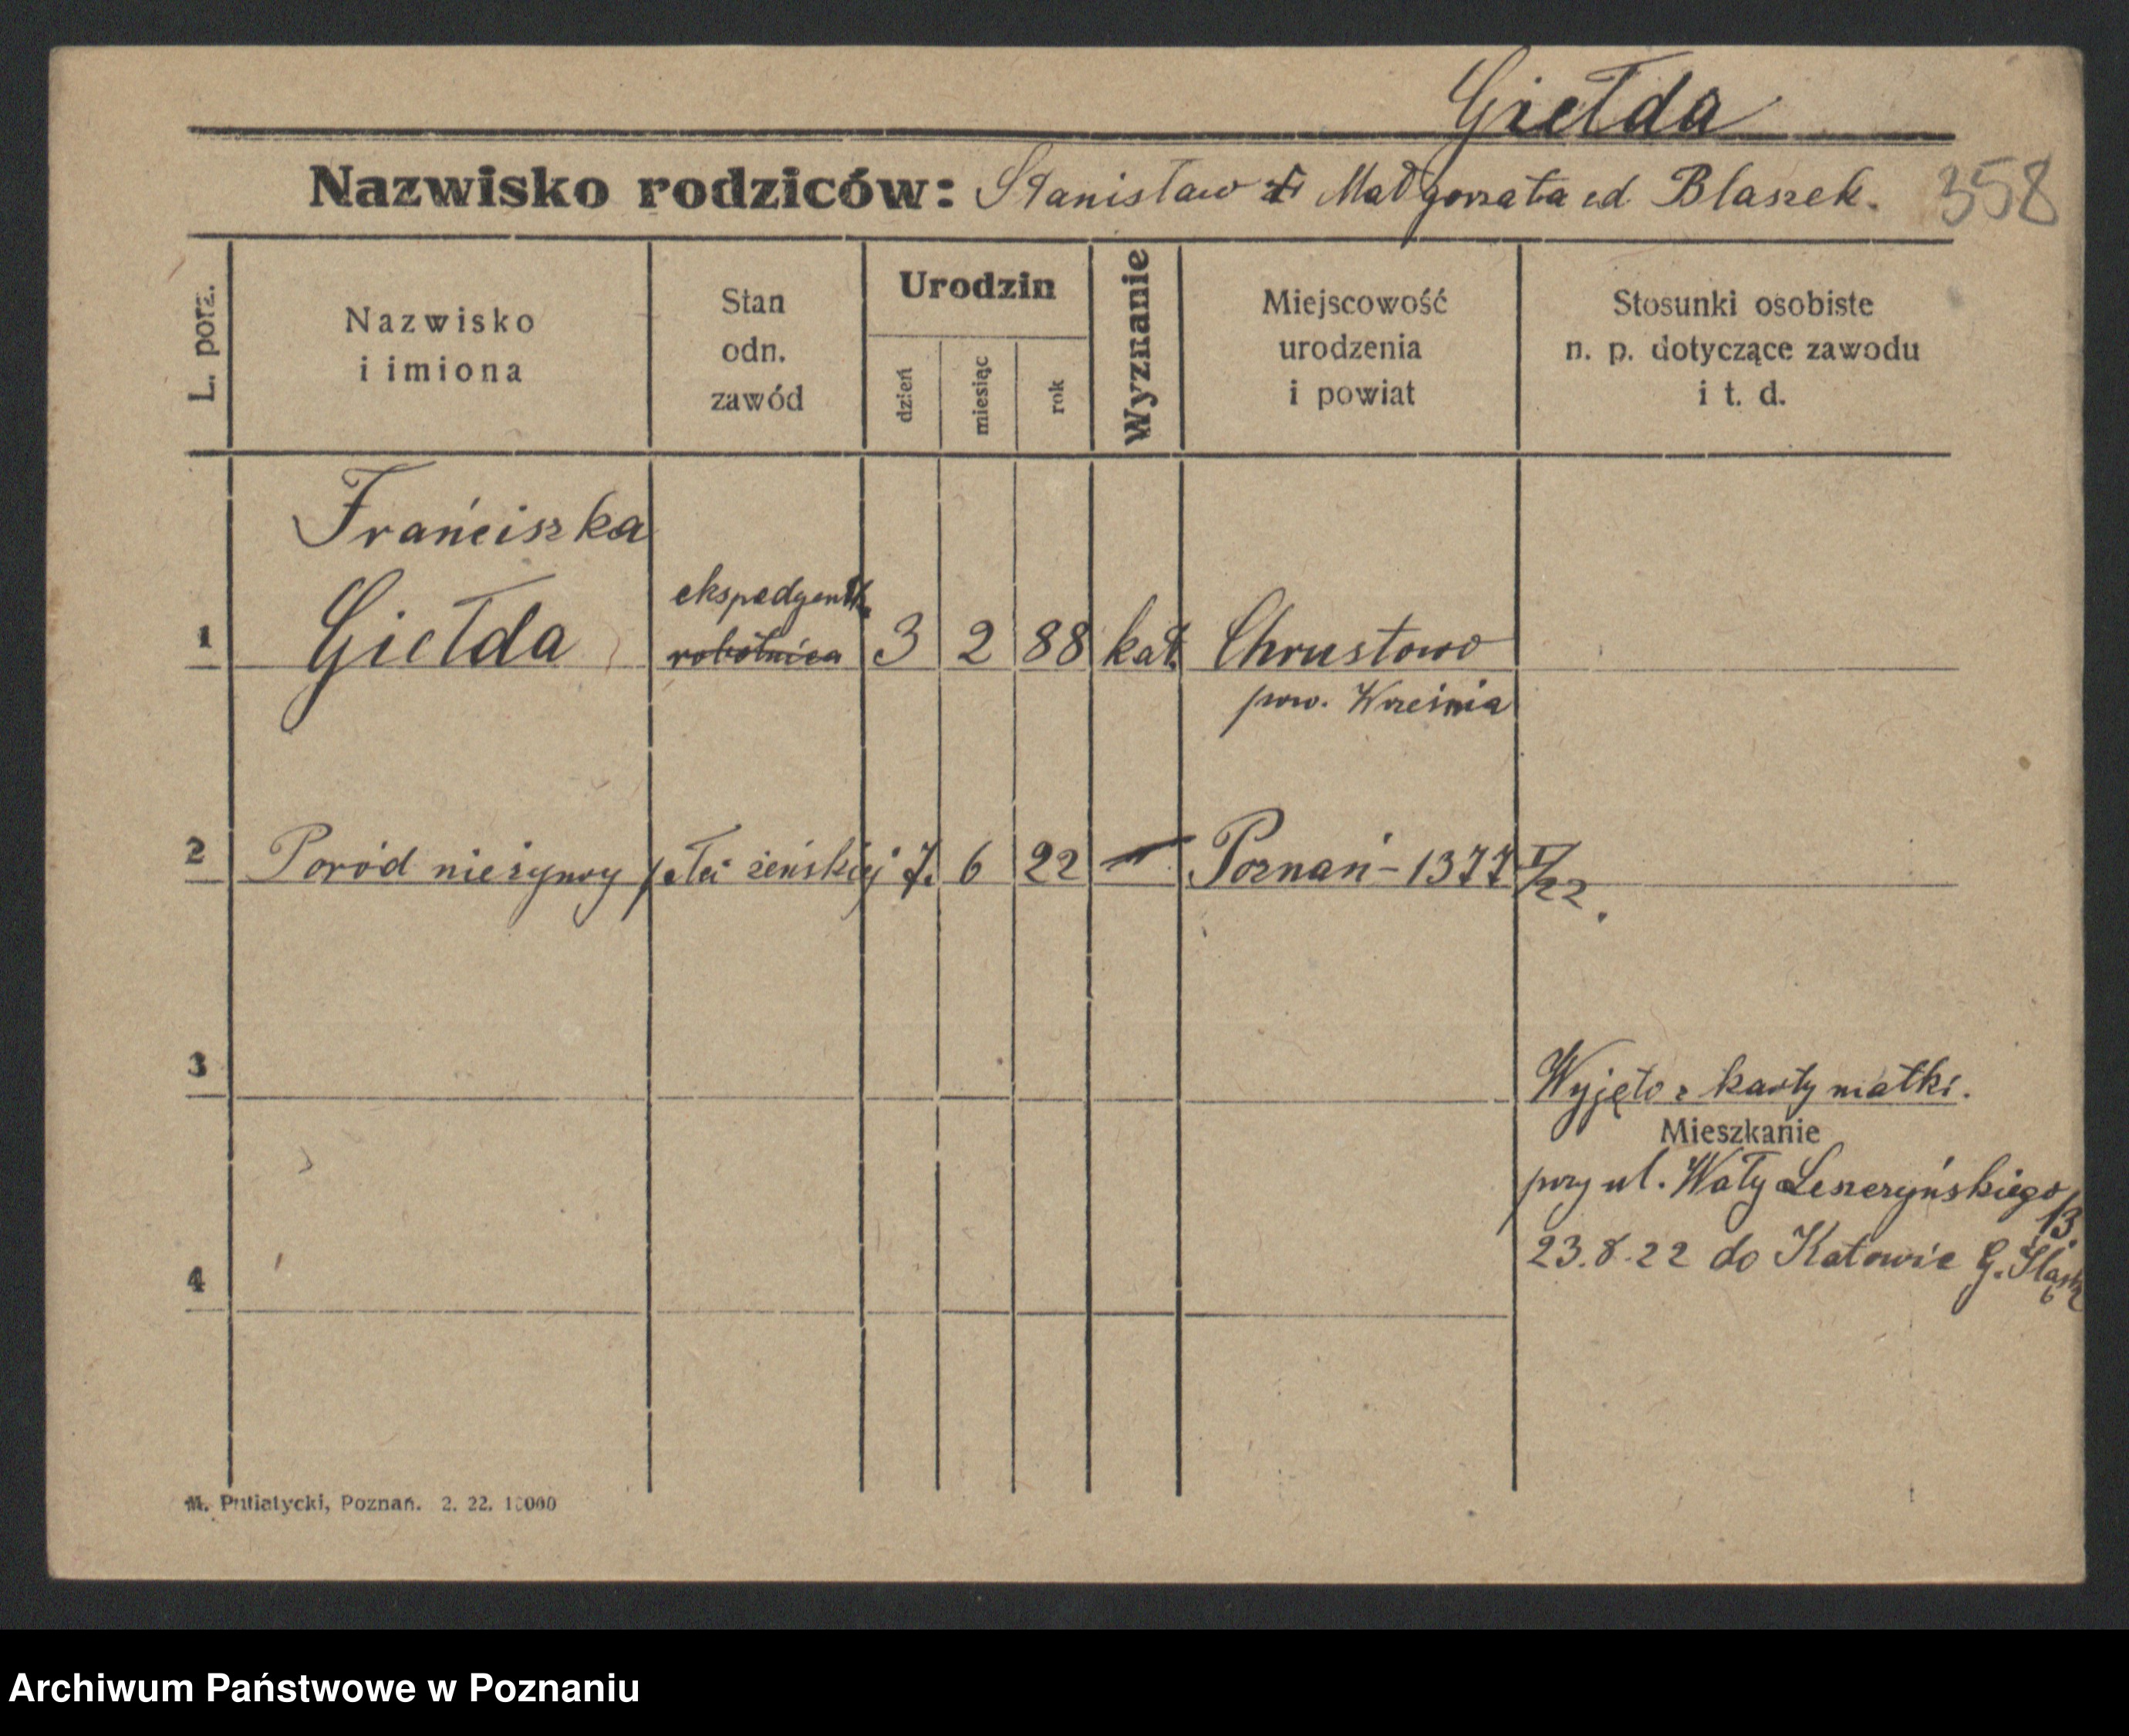 Giełda
Nazwisko rodziców: Stanisław i Małgorzata ed Blaszek.
358
L. porz.
Nazwisko
i imiona
Stan
odn.
zawód
Urodzin
dzień
miesiąc
rok
Wyznanie
Miejscowość
urodzenia
i powiat
Stosunki osobiste
n. p. dotyczące zawodu
i t. d.
Franciszka
ekspedyentk.
1 Giełda robotnica 3 2 88 kat. Chrustowo
pow. Wreśnia
2 Poród nieżywy płci żeńskiej 7. 6 22 — Poznań - 1377 /22.
3
Wyjęto z karty matki.
Mieszkanie
przy ul. Wały Leszczyńskiego
13.
23.8.22 do Katowic G. Śląsk
4
M. Putiatycki, Poznań. 2. 22. 10000
Archiwum Państwowe w Poznaniu